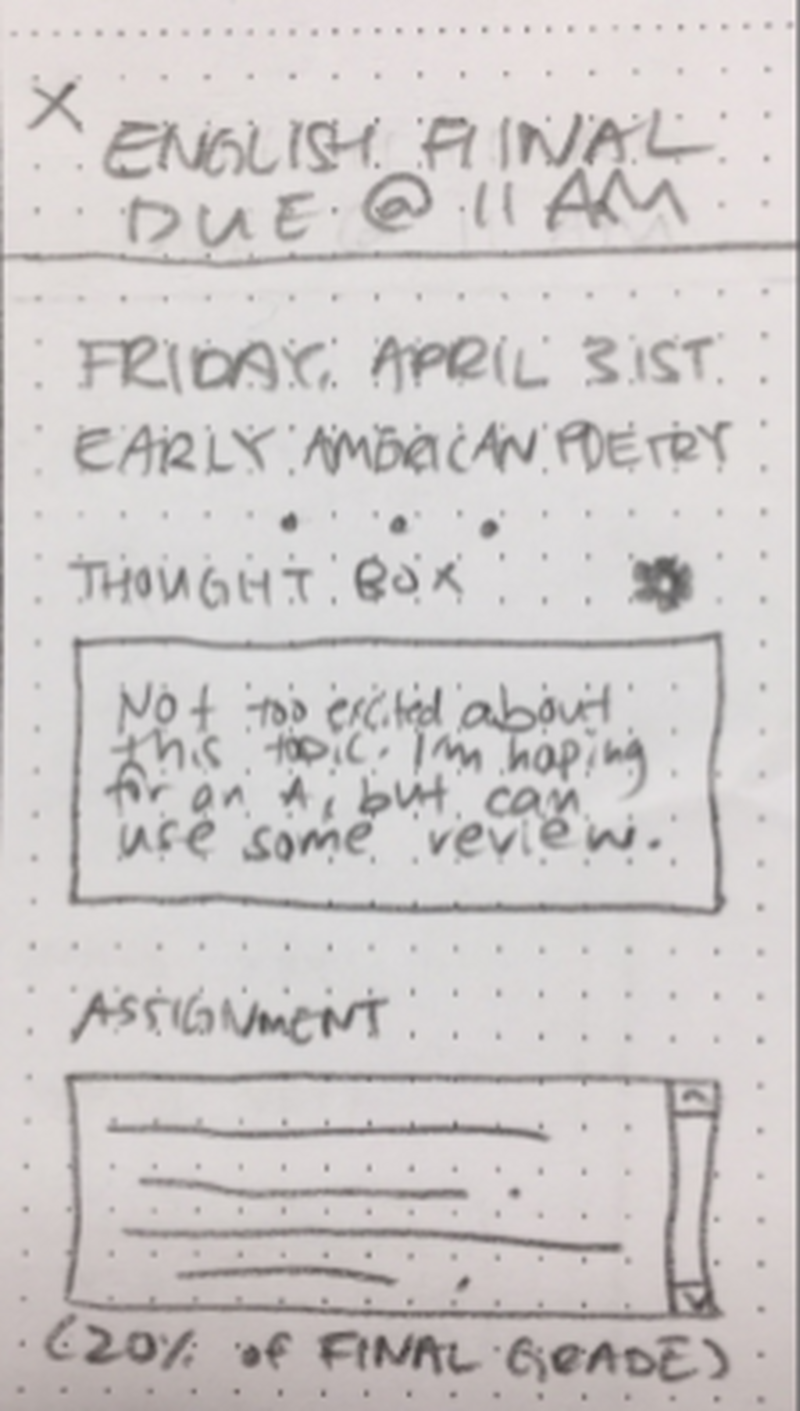 X
ENGLISH FINAL
DUE @ 11 AM
FRIDAY, APRIL 31ST
EARLY AMERICAN POETRY
THOUGHT BOX
Not too excited about
this topic. I'm hoping
for an A, but can
use some review.
ASSIGNMENT
(20% of FINAL GRADE)